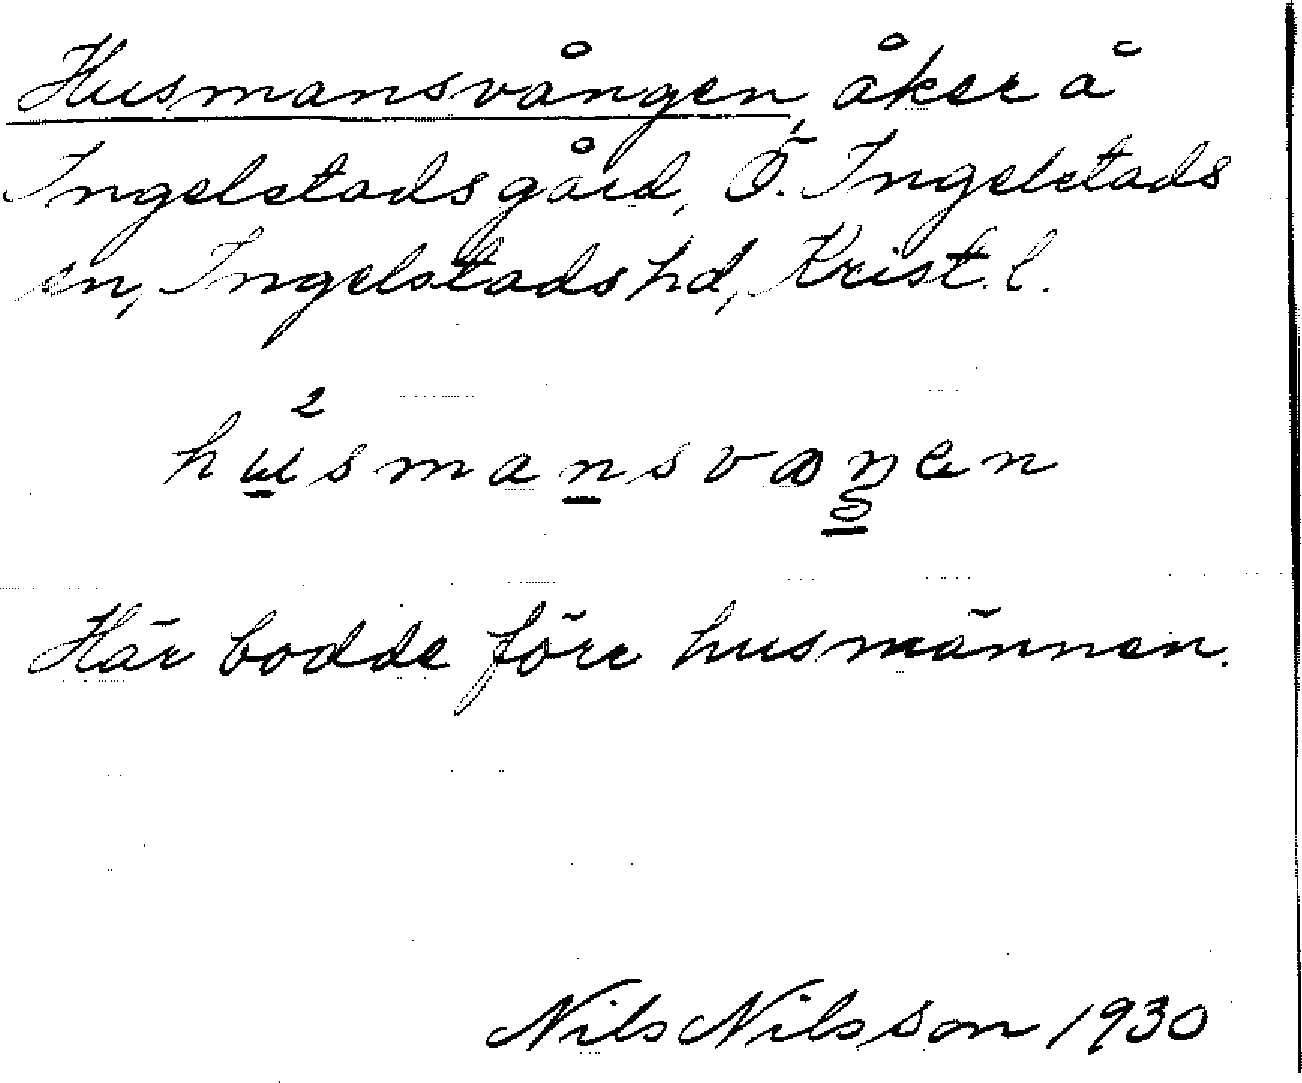 Husmansvången, åker å
Ingelstads gård, Ö. Ingelstads
sn, Ingelstads hd, Krist. l.
husmansvaŋen
Här bodde före husmännen.
Nils Nilsson 1930